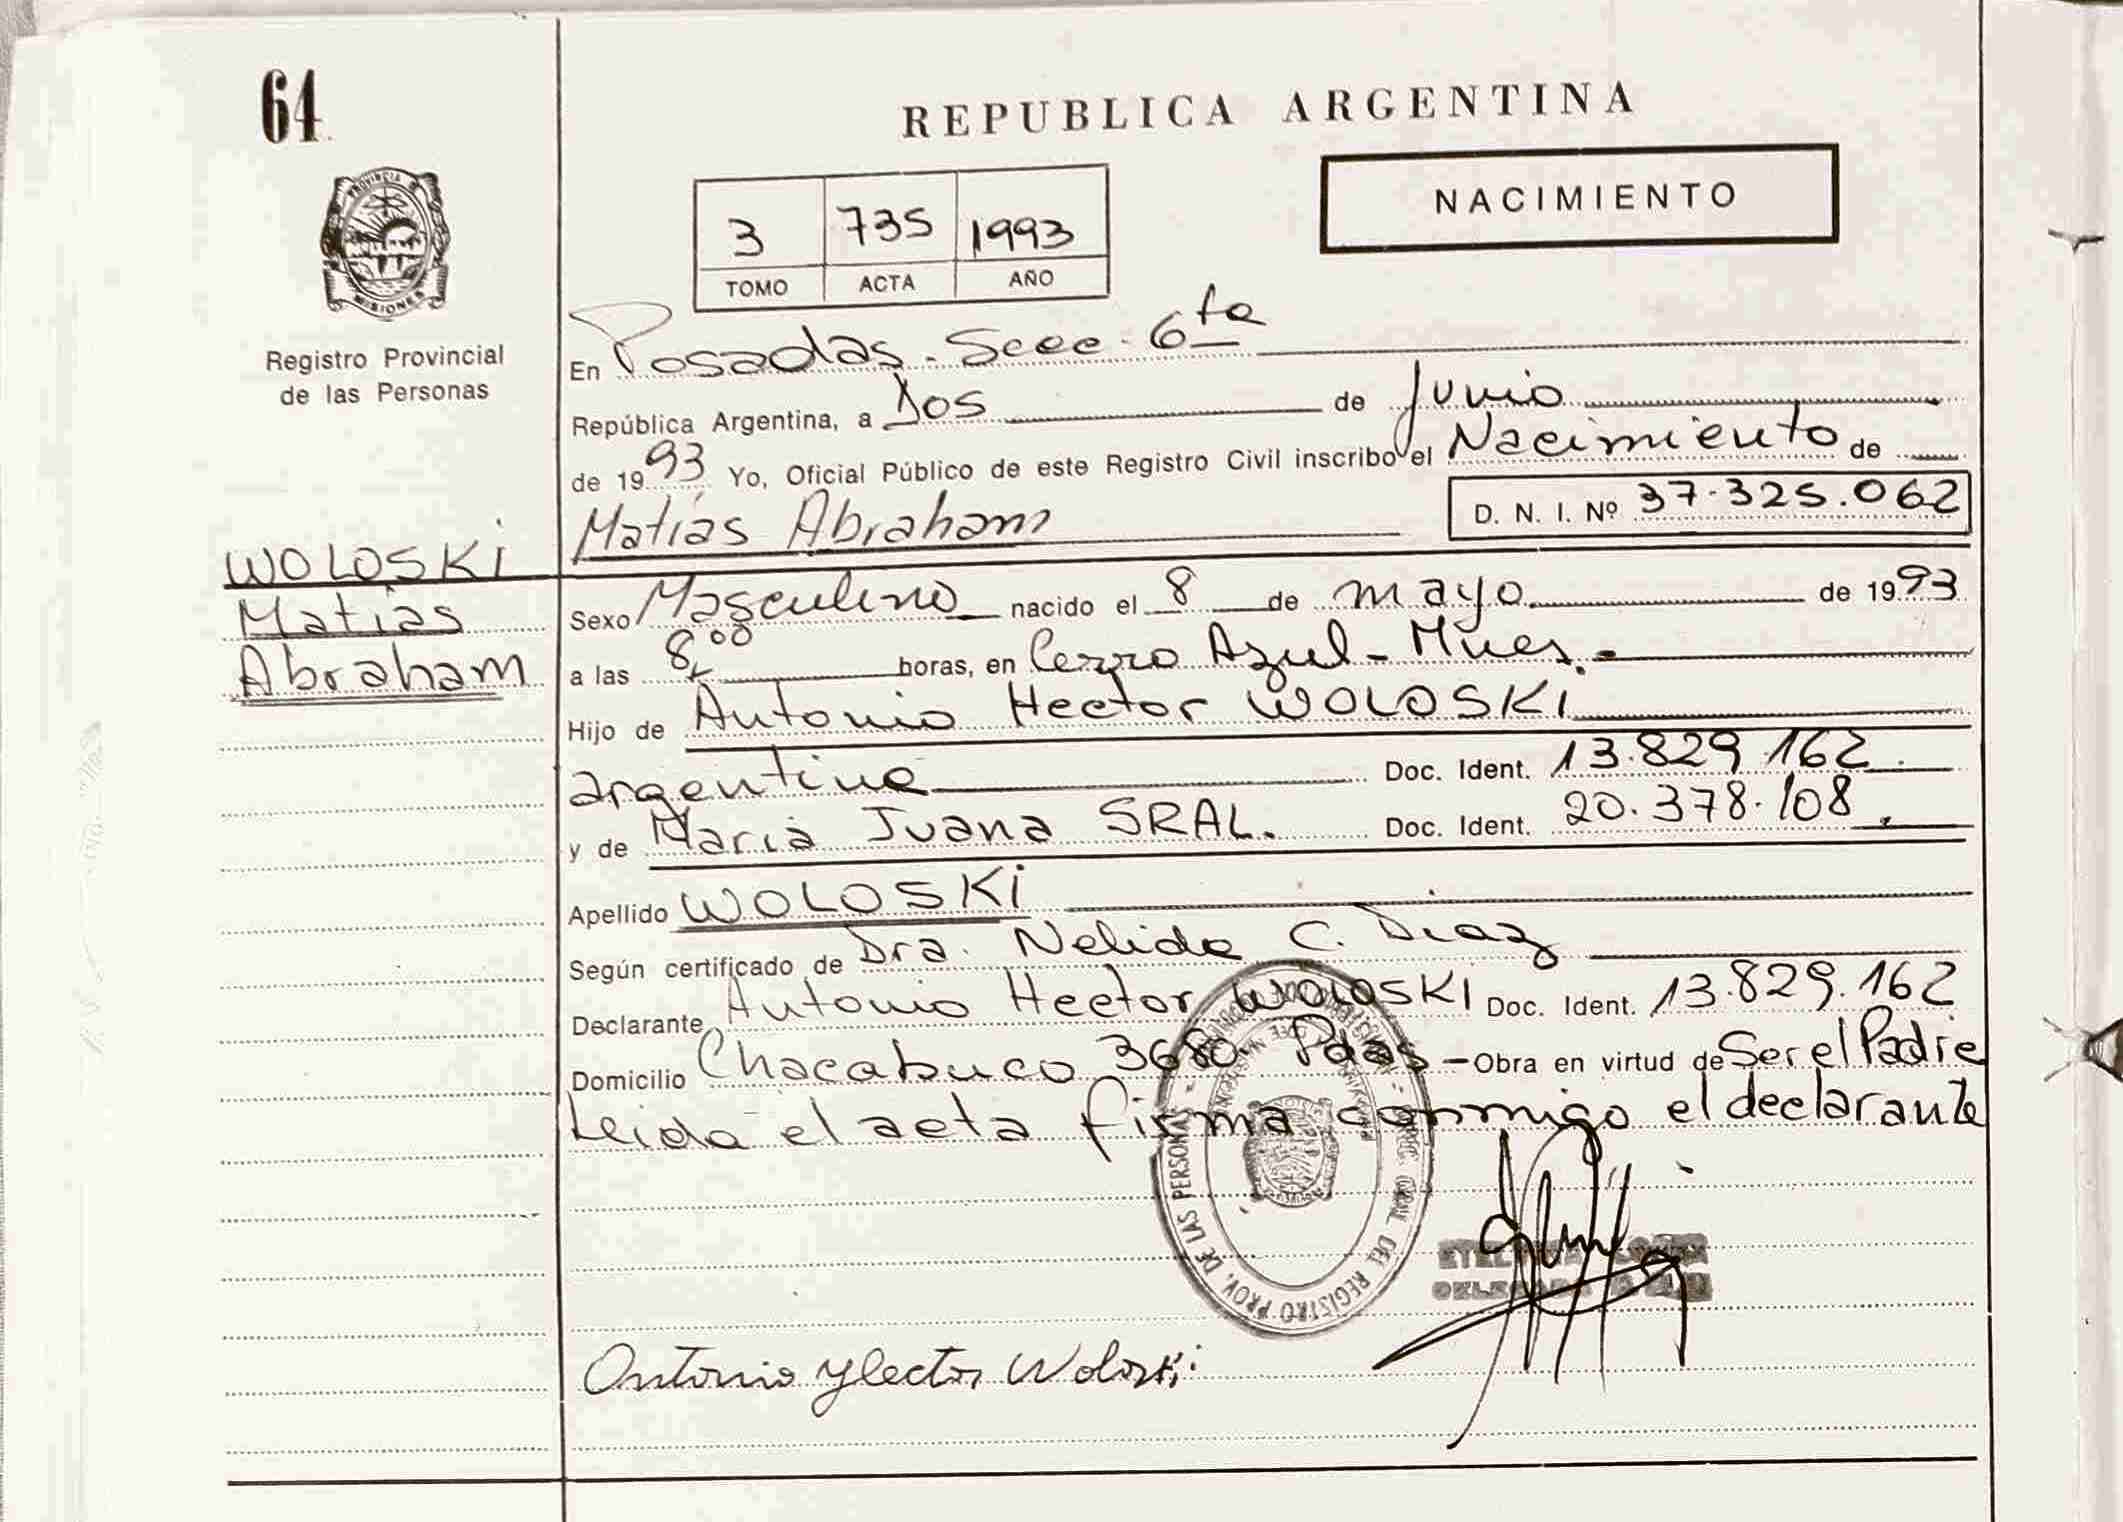 64
PROVINCIA DE
MISIONES
Registro Provincial
de las Personas
WOLOSKI
Matías
Abraham
REPUBLICA ARGENTINA
NACIMIENTO
3 735 1993
TOMO ACTA AÑO
En Posadas - Secc - 6ta
República Argentina, a Dos de Junio
de 1993 Yo, Oficial Público de este Registro Civil inscribo el Nacimiento de
Matías Abraham D. N. I. Nº 37.325.062
Sexo Masculino nacido el 8 de mayo de 1993
a las 8,00 horas, en Cerro Azul - Mnes.
Hijo de Antonio Hector WOLOSKI
argentino Doc. Ident. 13.829.162.
y de Maria Juana SRAL. Doc. Ident. 20.378.108.
Apellido WOLOSKI
Según certificado de Dra. Nelida C. Diaz
Declarante Antonio Hector WOLOSKI Doc. Ident. 13.829.162
Domicilio Chacabuco 3680 Pdas - Obra en virtud de Ser el Padre
Leida el acta firma conmigo el declarante
REGISTRO PROV. DE LAS PERSONAS
Antonio Hector Woloski